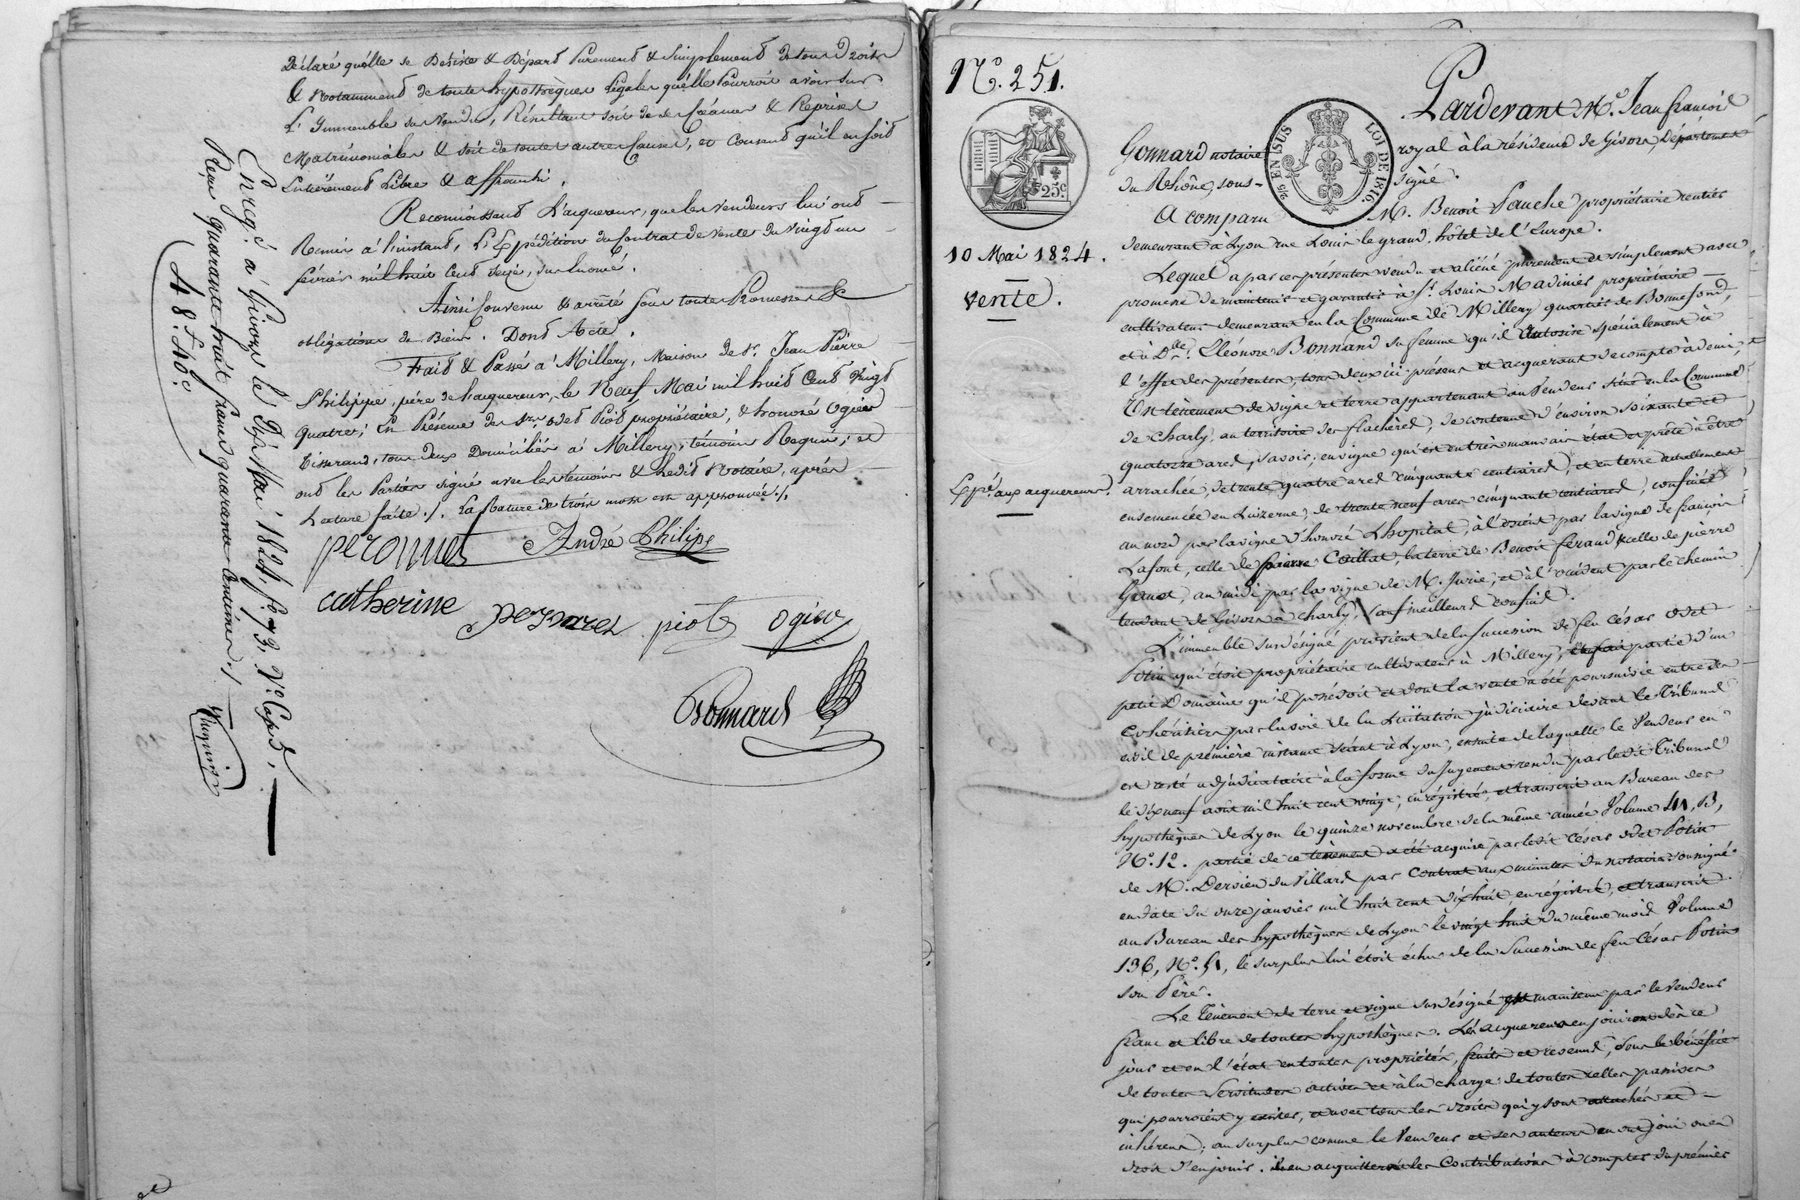 déclaré quélle se Désiste & Départ Purement & Simplement de tous Droits
& Notamment de toutes hypothèques légales quélle Pourroit avoir sur
L'Immeuble sus Vendu, Résultant soit de ses Créances & Reprises
Matrimoniales & soit de toutes autres Causes, et Consent qu'il en soit
Entièrement Libre & affranchi.
Reconnoissant L'acquereur, que les vendeurs lui ont
Remis à l'instant, L'Expédition du Contrat de Vente du Vingt un
février mil huit Cent seize, sus énoncé.
Ainsi Convenu & arrêté sous toutes Promesses &
obligations de Biens. Dont Acte.
Fait & Passé à Millery, Maison de Sr. Jean Pierre
Philippe, père de l'acquereur, le Neuf Mai mil huit Cent Vingt
quatre; En Présence de Srs. Odet Piot propriétaire, & honoré Ogier
Tisserand, tous deux Domiciliés à Millery, témoins Requis; et
ont les Parties signé avec les témoins & Ledit Notaire, après
Lecture faite./. La Rature de trois mots est approuvée./.
peronnet André Philipe
catherine peronnet piot ogier
Gonnard
Enregé. à Givors le Dix Mai 1824, fo. 73, Vo. Case,
Reçu quarante huit francs quarante centimes./.
48.f 40c.
No. 251.
25c.
10 Mai 1824.
Vente.
Expé. aux acquereurs.
2/5 EN SUS
LOI DE 1816
Pardevant Me. Jean françois
Gonnard notaire royal à la résidence de Givors, Département
du Rhône, sous-signé.
A comparu M. Benoit Fauche propriétaire rentier
demeurant à Lyon rue Louis le grand, hôtel de l'Europe.
Lequel a par ces présentes vendu et aliéné purement et simplement avec
promesse de maintenir et garantir à Sr. Louis Madinier propriétaire
cultivateur demeurant en la Commune de Millery quartier de Bonnefond,
et à Dlle. Eléonore Bonnand sa femme qu'il autorise spécialement à
l'effet des présentes, tous deux ici présens et acquerant de compte à demi,
Un tènement de vigne et terre appartenant au Vendeur situé en la Commune
de Charly, au territoire des flachères, de contenue d'environ soixante et
quatorze ares, savoir; en vigne qui est en très mauvais état et prête à être
arrachée, de trente quatre ares cinquante centiares, et en terre actuellement
ensemencée en Luizerne, de trente neuf ares cinquante centiares, confinés
au nord par la vigne d'honoré Lhopital, à l'orient par la vigne de françois
Lafont, celle de pierre Coillat, la terre de Benoit feraud & celle de pierre
, au midi par la vigne de M. Jurie, et à l'occident par le chemin
tendant de Givors à Charly, sauf meilleurs confins.
L'immeuble susdésigné provient de la succession de feu César Odet
Potin qui étoit propriétaire cultivateur à Millery, partie d'un
petit Domaine qu'il possédoit et dont la vente a été poursuivie entre ses
Cohéritiers par la voie de la Licitation judiciaire devant le Tribunal
civil de première instance séant à Lyon, ensuite de laquelle le Vendeur en
est resté adjudicataire à la forme du Jugement rendu par ledit Tribunal
le dixneuf août mil huit cent vingt, enrégistré, et transcrit au Bureau des
hypothèques de Lyon le quinze novembre de la même année Volume 411, B,
No. 12. partie de ce tènement a été acquise par ledit César Odet Potin
de M. Dervieu du Villard par contrat aux minutes du notaire soussigné
en date du onze janvier mil huit cent dixhuit enrégistré, et transcrit
au Bureau des hypothèques de Lyon le vingt huit du même mois Volume
136, No. 51, le surplus lui étoit échu de la Succession de feu César Potin
son Père.
Le Tènement de terre et vigne susdésigné est maintenu par le Vendeur
franc et libre de toutes hypothèques. Les acquereurs en jouiront dès ce
jour et en l'état en toutes propriétés, fruits et revenus, sous le bénéfice
de toutes Servitudes actives et à la charge de toutes celles passives
qui pourroient y exister, et avec tous les droits qui y sont attachés et
inhérens; au surplus comme le Vendeur et ses auteurs en ont joui ou eu
droit d'en jouir. ils en acquitteront les Contributions à compter du premier